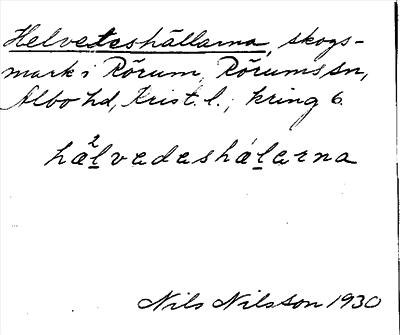 Helveteshällarna, skogs-
mark i Rörum, Rörums sn,
Albo hd, Krist. l.; kring 6
hä²lvedeshálarna
Nils Nilsson 1930